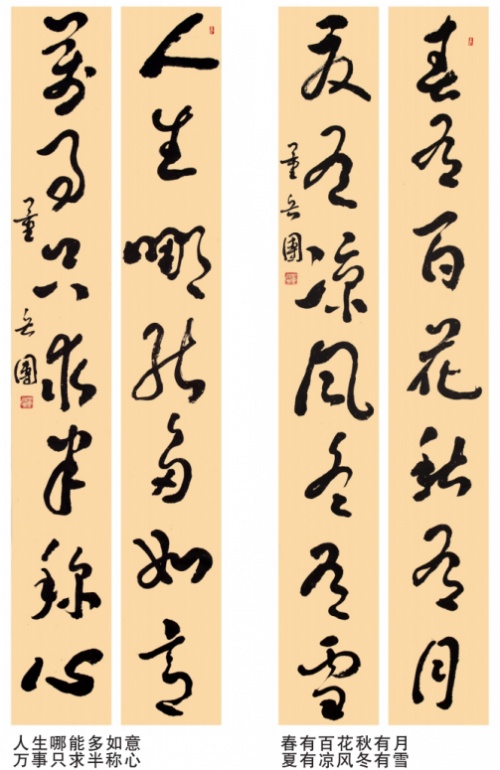 春有百花秋有月
夏有凉风冬有雪
人生哪能多如意
萬事只求半称心
人生哪能多如意
万事只求半称心
春有百花秋有月
夏有凉风冬有雪